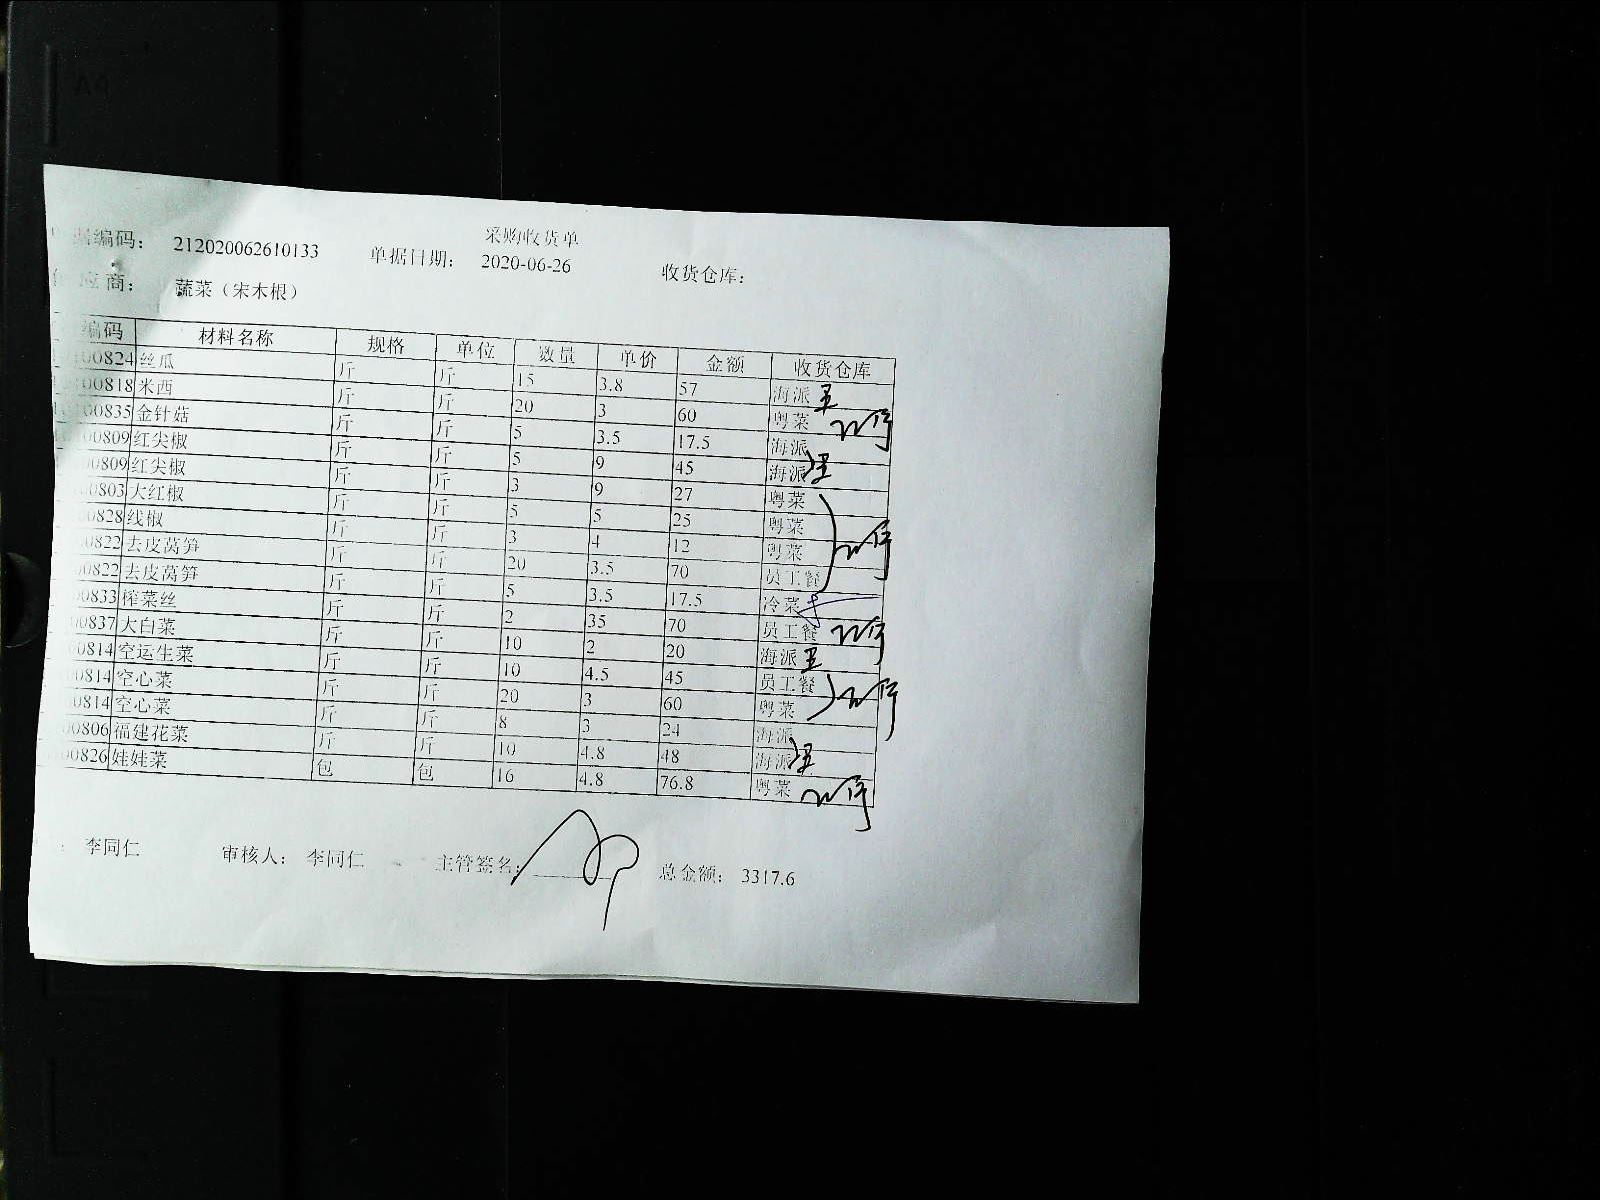 采购收货单
编码： 212020062610133 单据日期： 2020-06-26 收货仓库：
应商： 蔬菜（宋木根）
编码 材料名称 规格 单位 数量 单价 金额 收货仓库
00824 丝瓜 斤 斤 15 3.8 57 海派
00818 米西 斤 斤 20 3 60 粤菜
00835 金针菇 斤 斤 5 3.5 17.5 海派
00809 红尖椒 斤 斤 5 9 45 海派
00809 红尖椒 斤 斤 3 9 27 粤菜
00803 大红椒 斤 斤 5 5 25 粤菜
00828 线椒 斤 斤 3 4 12 粤菜
00822 去皮莴笋 斤 斤 20 3.5 70 员工餐
00822 去皮莴笋 斤 斤 5 3.5 17.5 冷菜
00833 榨菜丝 斤 斤 2 35 70 员工餐
00837 大白菜 斤 斤 10 2 20 海派
00814 空运生菜 斤 斤 10 4.5 45 员工餐
00814 空心菜 斤 斤 20 3 60 粤菜
00814 空心菜 斤 斤 8 3 24 海派
00806 福建花菜 斤 斤 10 4.8 48 海派
00826 娃娃菜 包 包 16 4.8 76.8 粤菜
： 李同仁 审核人： 李同仁 主管签名： 总金额： 3317.6